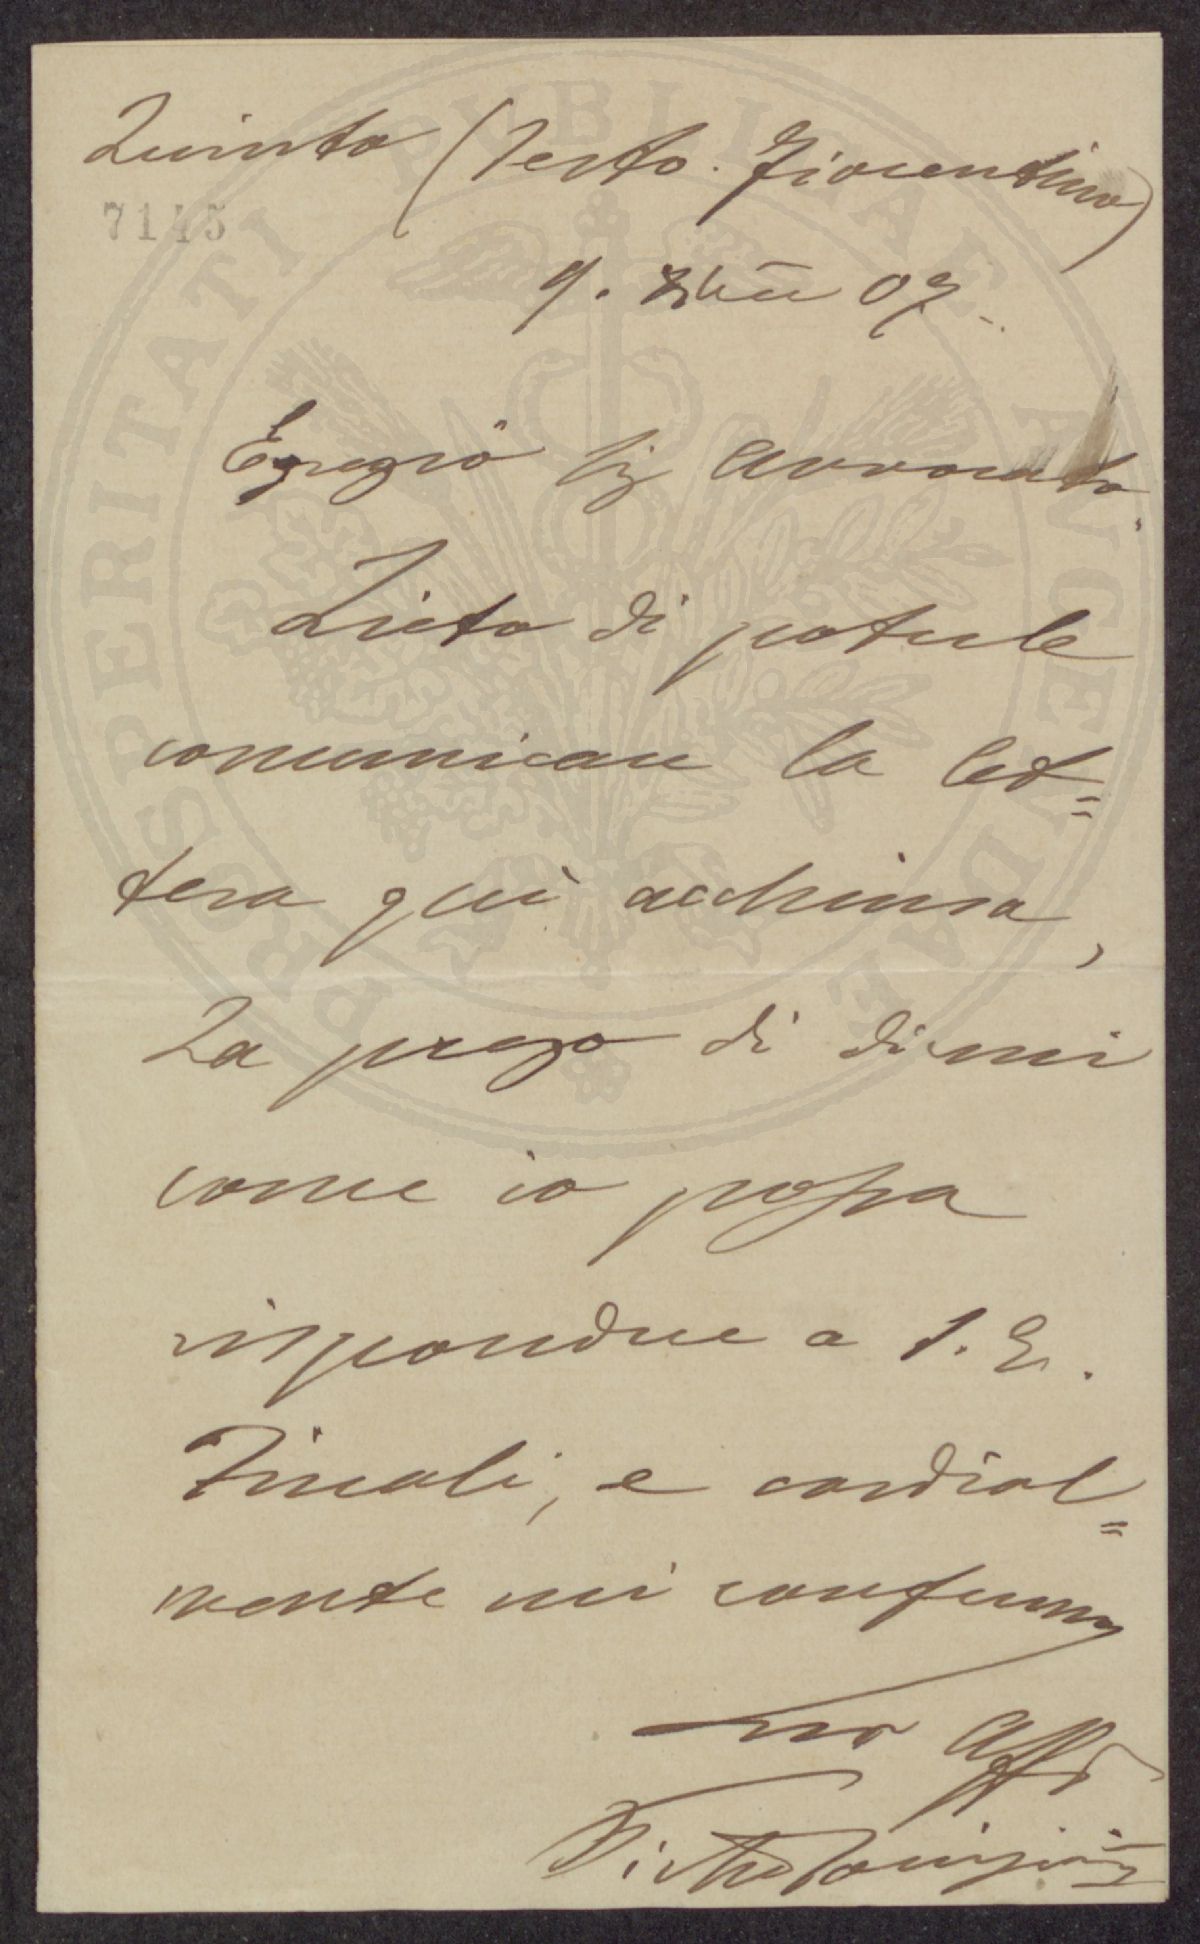 Quinto (Sesto. Fiorentino)
7145
9. Xbre 07.
Egregio Sig Avvocato.
Lieto di poterle
comunicare la let=
tera qui acchiusa,
La prego di dirmi
come io possa
rispondere a S. E.
Finali, e cordial=
mente mi confermo
suo Aff
PROSPERITATI PVBLICAE AVGENDAE